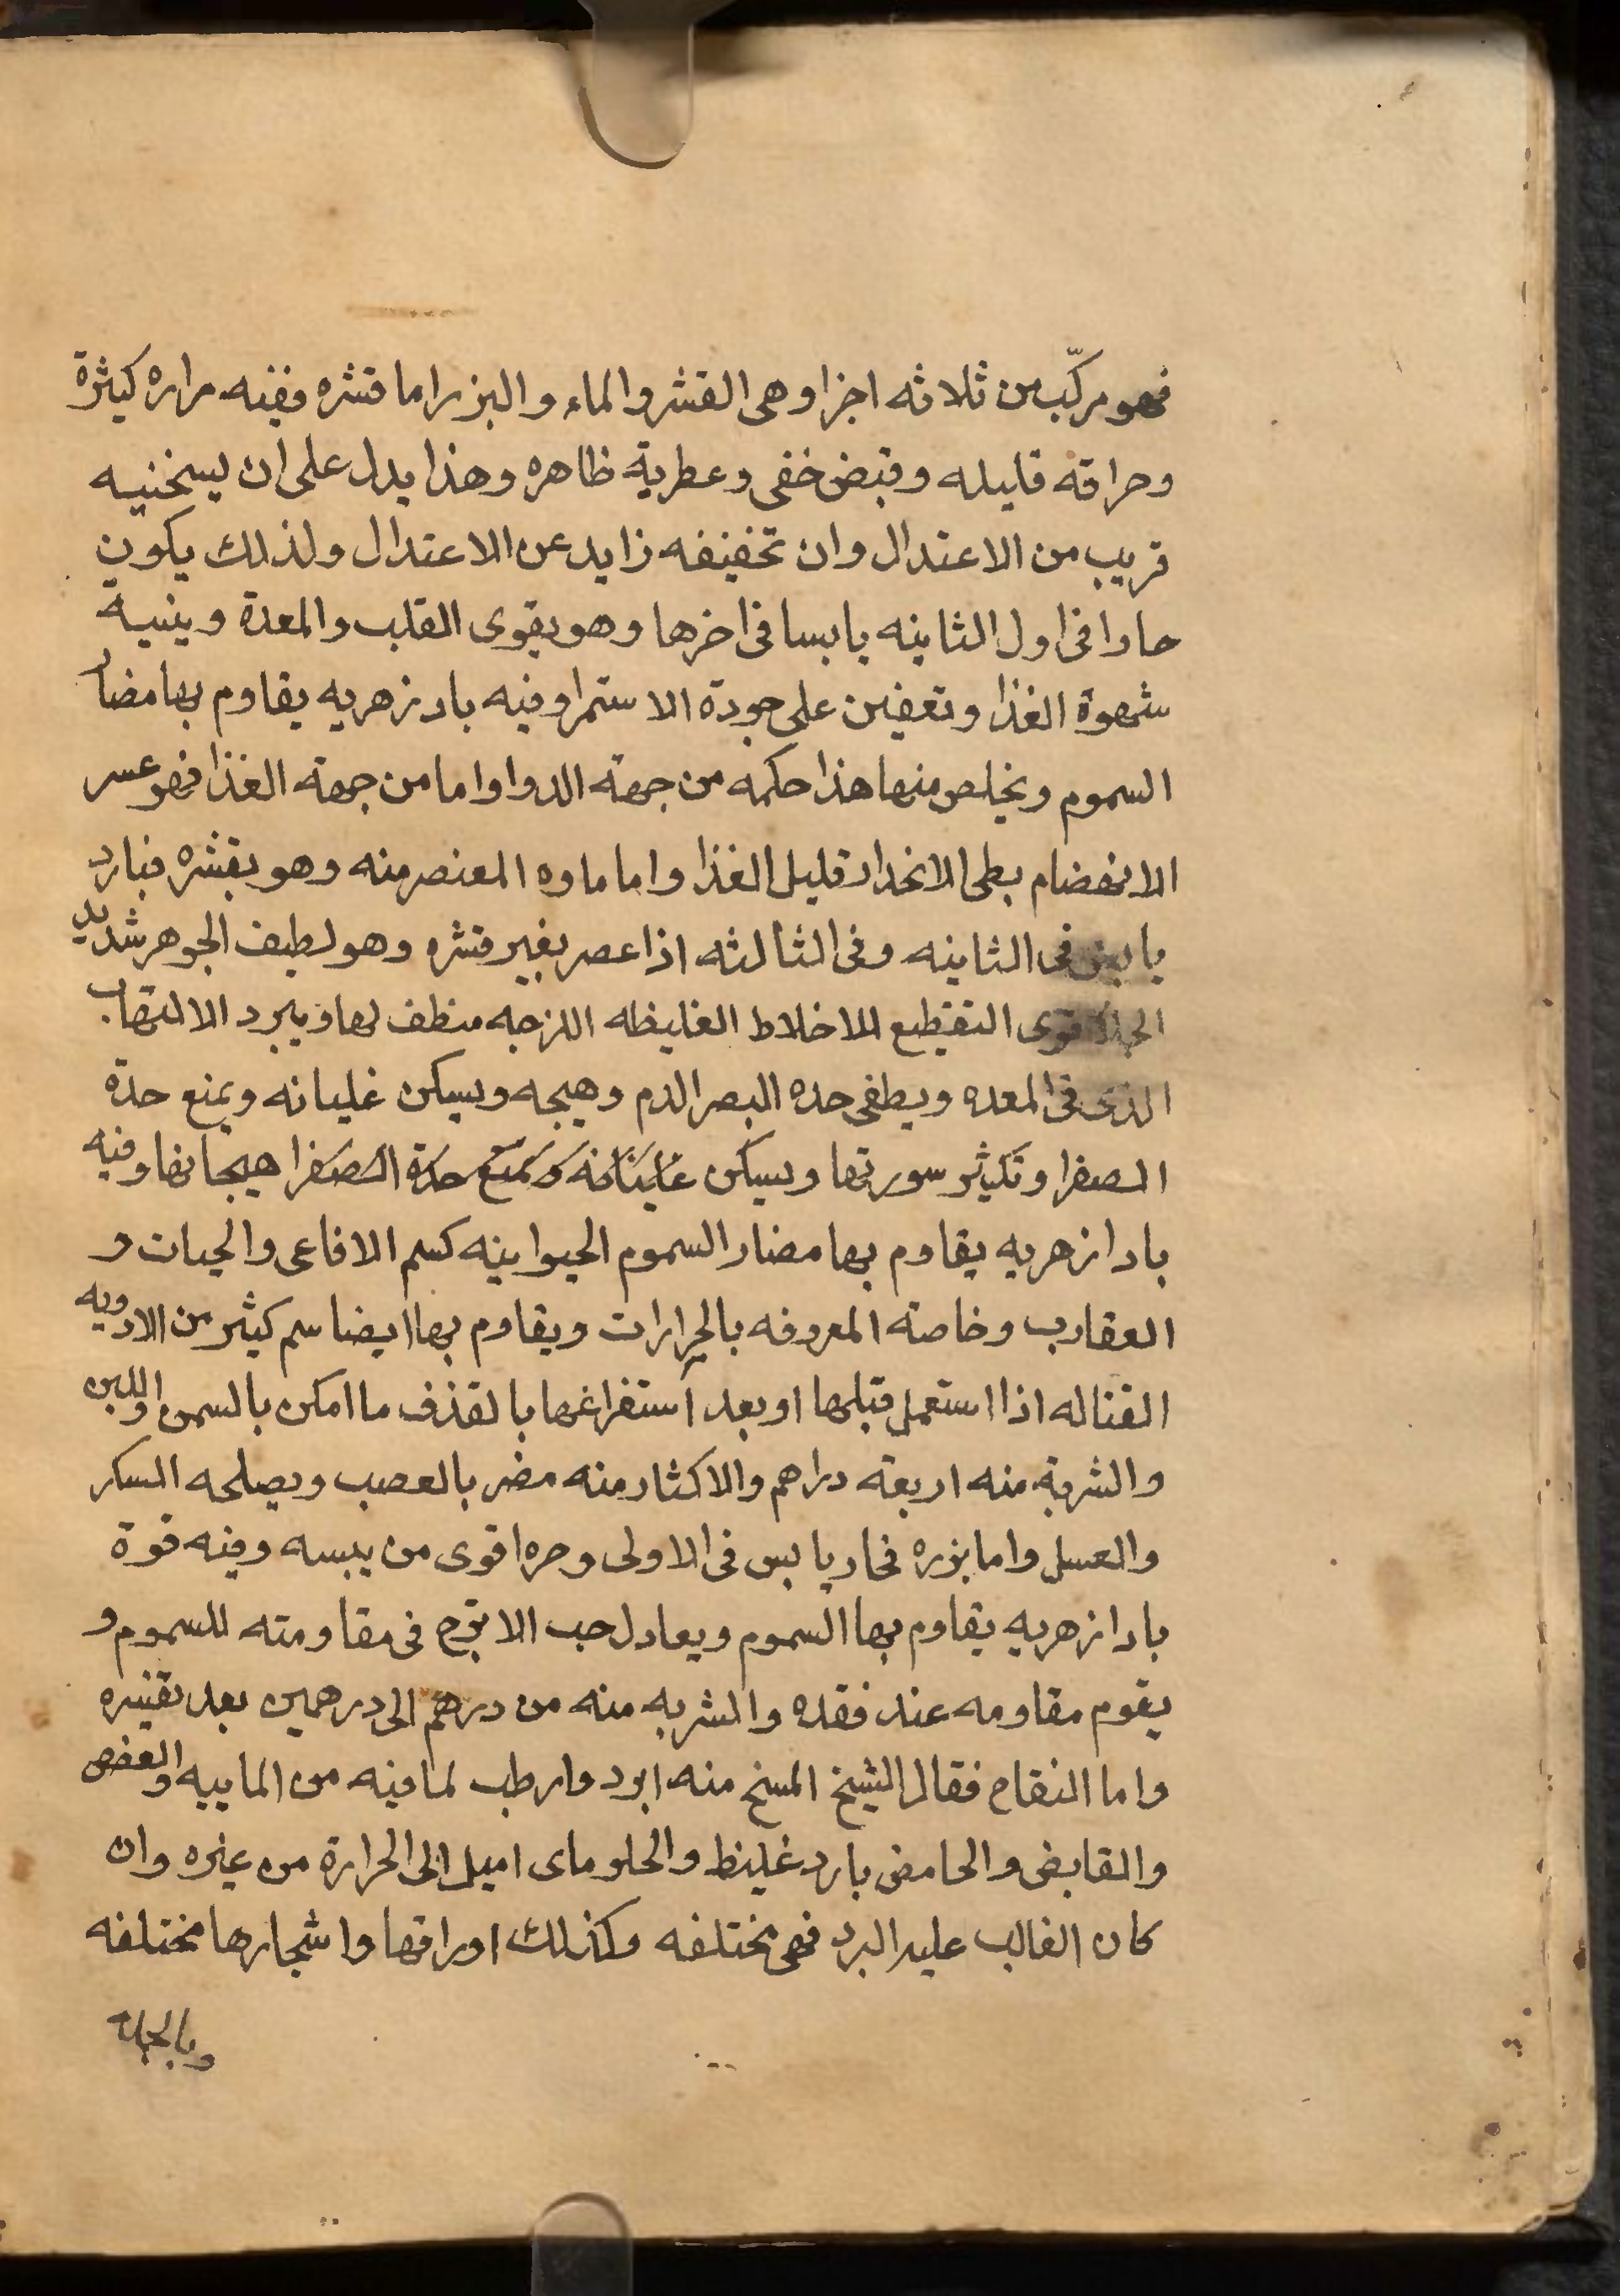 فهو مركّب من ثلاثه اجزا وهى القشر والماء والبزر اما قشره ففيه مراره كثيرة
وحراقه قليله وقبض خفى وعطرية ظاهره وهذا يدل على ان يسخنيه
قريب من الاعتدال وان تخفيفه زايد عن الاعتدال ولذلك يكون
حارا فى اول الثانيه يابسا فى اخرها وهو يقوى القلب والمعدة وينبية
شهوة الغذا وتعين على جودة الاستمرا وفيه بادزهريه يقاوم بها مضار
السموم ويخلص منها هذا حكمه من جهة الدوا واما من جهة الغذا فهو عسر
الانهضام بطى الانحدار قليل الغذا واما ماوه المعتصر منه وهو بقشره فبارد
يابس فى الثانيه وفى الثالثه اذا عصر بغير قشره وهو لطيف الجوهر شديد
الجلا قوى التقطيع للاخلاط الغليظه اللزجه منظف لها ويبرد الالتهاب
الذى فى المعده ويطفى حده البصر الدم وهيجه ويسكن غليانه ويمنع حدة
الصفرا وتكيثر سورتها ويسكن غليانه ويمنع حدة الصفرا هيجانها وفيه
بادازهريه يقاوم بها مضار السموم الحيوانيه كسم الافاعى والحيات و
العقارب وخاصة المعروفه بالجرارات ويقاوم بها ايضا سم كثير من الادويه
القتاله اذا استعمل قبلها او بعد استفراغها بالقذف ما امكن بالسمن واللبن
والشربة منه اربعة دراهم والاكثار منه مضر بالعصب ويصلحه السكر
والعسل واما بزره فحار يابس فى الاولى وحره اقوى من يبسه وفيه قوة
بادازهريه يقاوم بها السموم ويعادل حب الاترج فى مقاومته للسموم و
يقوم مقاومه عند فقده والشربه منه من درهم الى درهمين بعد تقشيره
واما التفاح فقال الشيخ المسخ منه ابرد وارطب لما فيه من المائيه والعفص
والقابض والحامض بارد غليظ والحلو ماى اميل الى الحرارة من غيره وان
كان الغالب عليه البرد فهى مختلفه وكذلك اوراقها واشجارها مختلفه
وبالجملة